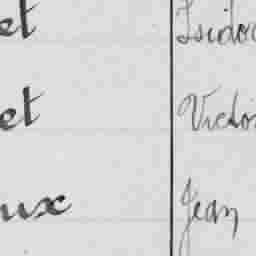 et Isido
et Victo
ux Jean